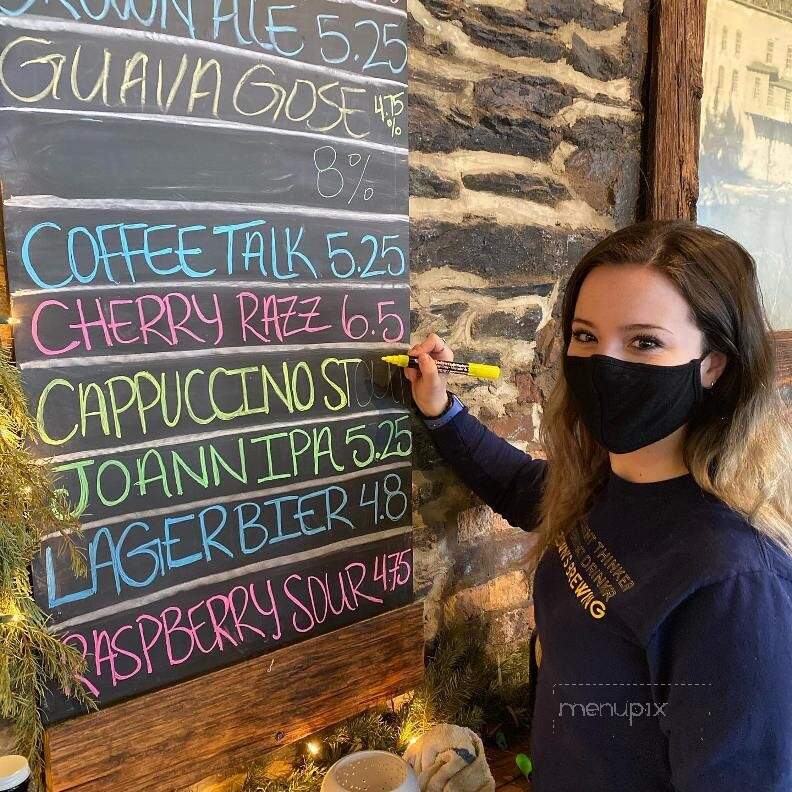 BROWN ALE 5.25
GUAVA GOSE 4.75%
8%
COFFEE TALK 5.25
CHERRY RAZZ 6.5
CAPPUCCINO STOUT
JOANN IPA 5.25
LAGERBIER 4.8
RASPBERRY SOUR 4.75
THINKER
DRINKR
BREWING
menupix